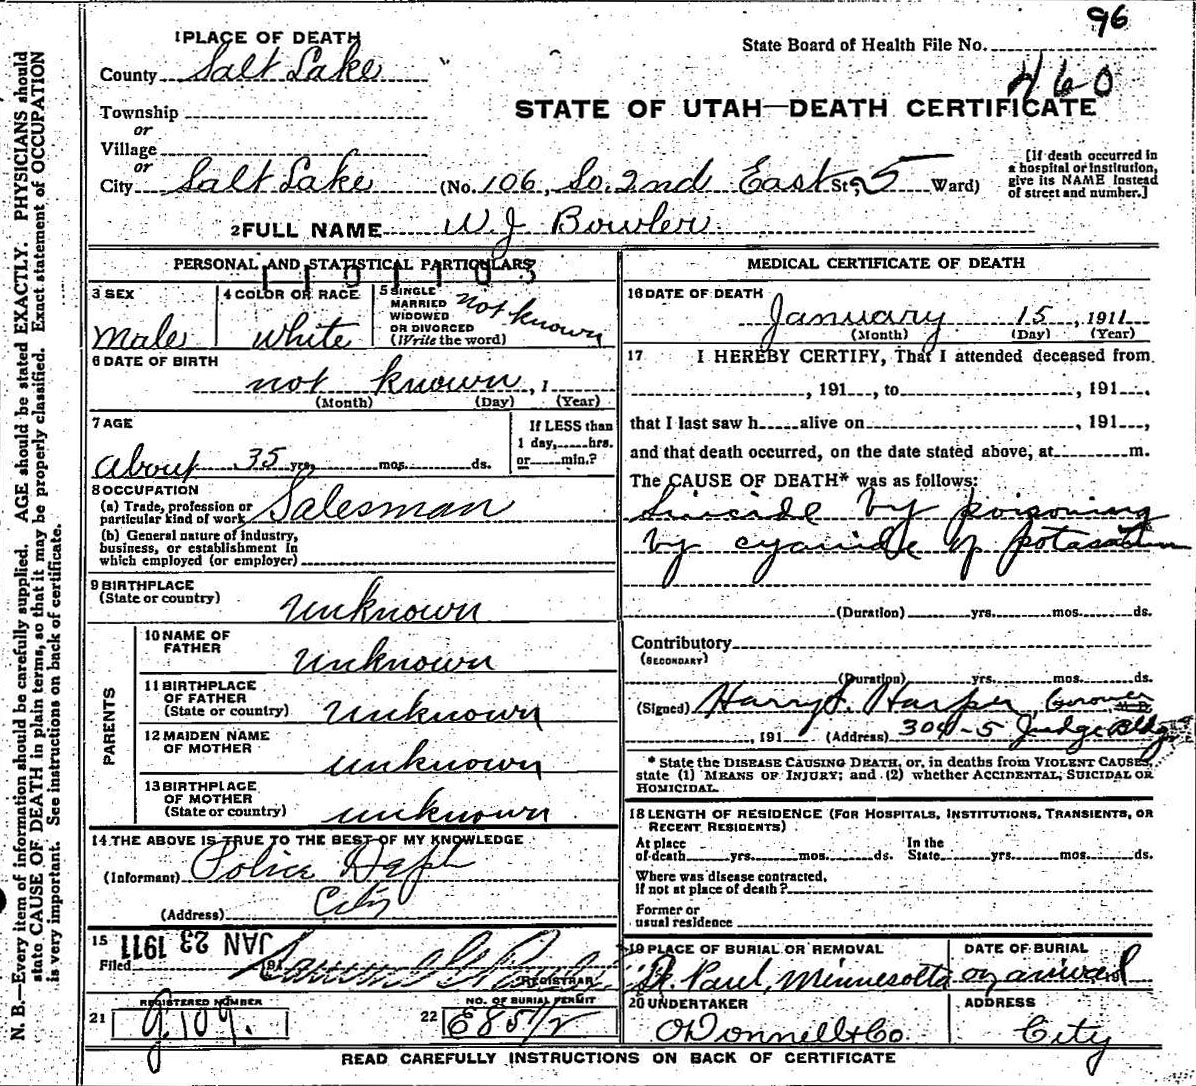 96
1 PLACE OF DEATH
State Board of Health File No.
County Salt Lake
460
STATE OF UTAH—DEATH CERTIFICATE
Township
or
Village
or
City Salt Lake (No. 106 So. 2nd East St; 5 Ward)
[If death occurred in a hospital or institution, give its NAME instead of street and number.]
2 FULL NAME W. J Bowler
PERSONAL AND STATISTICAL PARTICULARS
3 SEX
Male
4 COLOR OR RACE
White
5 SINGLE
MARRIED
WIDOWED
OR DIVORCED
(Write the word)
not known
6 DATE OF BIRTH
not known, 1
(Month) (Day) (Year)
7 AGE
about 35 yrs. mos. ds.
If LESS than
1 day, hrs.
or min.?
8 OCCUPATION
(a) Trade, profession or
particular kind of work Salesman
(b) General nature of industry,
business, or establishment in
which employed (or employer)
9 BIRTHPLACE
(State or country) unknown
PARENTS
10 NAME OF
FATHER unknown
11 BIRTHPLACE
OF FATHER
(State or country) unknown
12 MAIDEN NAME
OF MOTHER unknown
13 BIRTHPLACE
OF MOTHER
(State or country) unknown
14 THE ABOVE IS TRUE TO THE BEST OF MY KNOWLEDGE
(Informant) Police Dept
(Address) City
15
Filed JAN 23 1911
REGISTRAR
REGISTERED NUMBER
21 g109.
NO. OF BURIAL PERMIT
22 E851/2
MEDICAL CERTIFICATE OF DEATH
16 DATE OF DEATH
January 15, 1911
(Month) (Day) (Year)
17 I HEREBY CERTIFY, That I attended deceased from
, 191 , to , 191 .
that I last saw h alive on , 191 ,
and that death occurred, on the date stated above, at m.
The CAUSE OF DEATH* was as follows:
Suicide by poisoning
by cyanide of potassium
(Duration) yrs. mos. ds.
Contributory
(SECONDARY)
(Duration) yrs. mos. ds.
(Signed) Harry S. Harper Coroner M.D.
, 191 (Address) 304-5 Judge Bldg
* State the DISEASE CAUSING DEATH, or, in deaths from VIOLENT CAUSES,
state (1) MEANS OF INJURY; and (2) whether ACCIDENTAL, SUICIDAL OR
HOMICIDAL.
18 LENGTH OF RESIDENCE (FOR HOSPITALS, INSTITUTIONS, TRANSIENTS, OR
RECENT RESIDENTS)
At place
of death yrs. mos. ds.
In the
State yrs. mos. ds.
Where was disease contracted,
if not at place of death?
Former or
usual residence
19 PLACE OF BURIAL OR REMOVAL
St. Paul, Minnesotta
DATE OF BURIAL
on arrival
20 UNDERTAKER
O'Donnell & Co.
ADDRESS
City
READ CAREFULLY INSTRUCTIONS ON BACK OF CERTIFICATE
N. B.—Every item of information should be carefully supplied. AGE should be stated EXACTLY. PHYSICIANS should
state CAUSE OF DEATH in plain terms, so that it may be properly classified. Exact statement of OCCUPATION
is very important. See instructions on back of certificate.